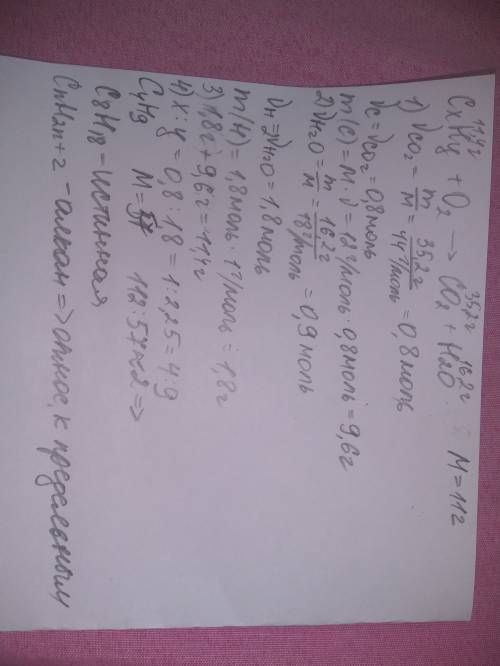 11,4г 35,2г 16,2г
CxHy + O2 → CO2 + H2O. M=112
1) νCO2 = m/M = 35,2г/44г/моль = 0,8моль
νC = νCO2 = 0,8моль
m(C) = M·ν = 12г/моль·0,8моль = 9,6г
2) νH2O = m/M = 16,2г/18г/моль = 0,9моль
νH = 2νH2O = 1,8моль
m(H) = 1,8моль·1г/моль = 1,8г
3) 1,8г + 9,6г = 11,4г
4) x:y = 0,8:18 = 1:2,25 = 4:9
C4H9 M=57 112:57≈2 =>
C8H18 - истинная
CnH2n+2 - алкан => относ. к предельным